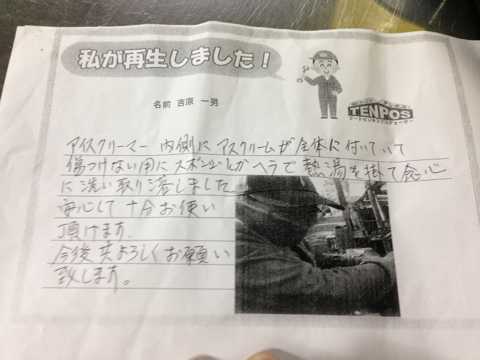 私が再生しました！
名前 吉原 一男
TENPOS
フードビジネスプロデューサー
アイスクリーマー 内側にアスクリームが全体に付いていて
傷つけない用にスポンジとかヘラで熱湯を掛て念心
に洗い取り落しました
安心して十分お使い
頂けます。
今後共よろしくお願い
致します。